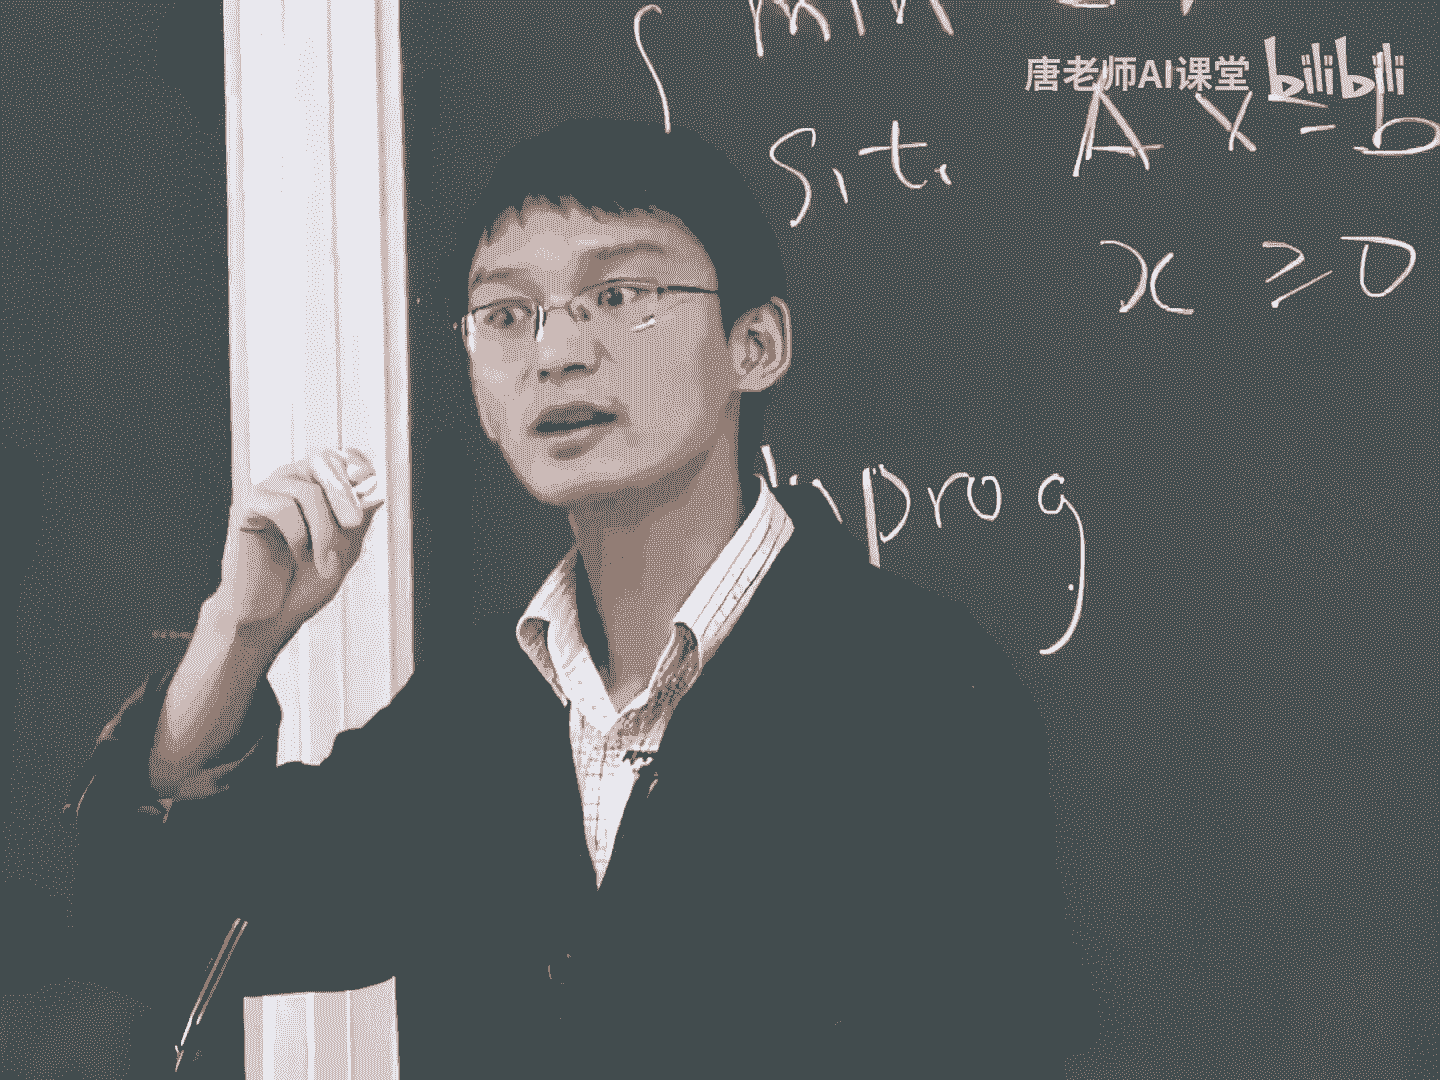 min
唐老师AI课堂 bilibili
s.t. Ax=b
x ≥ 0
linprog